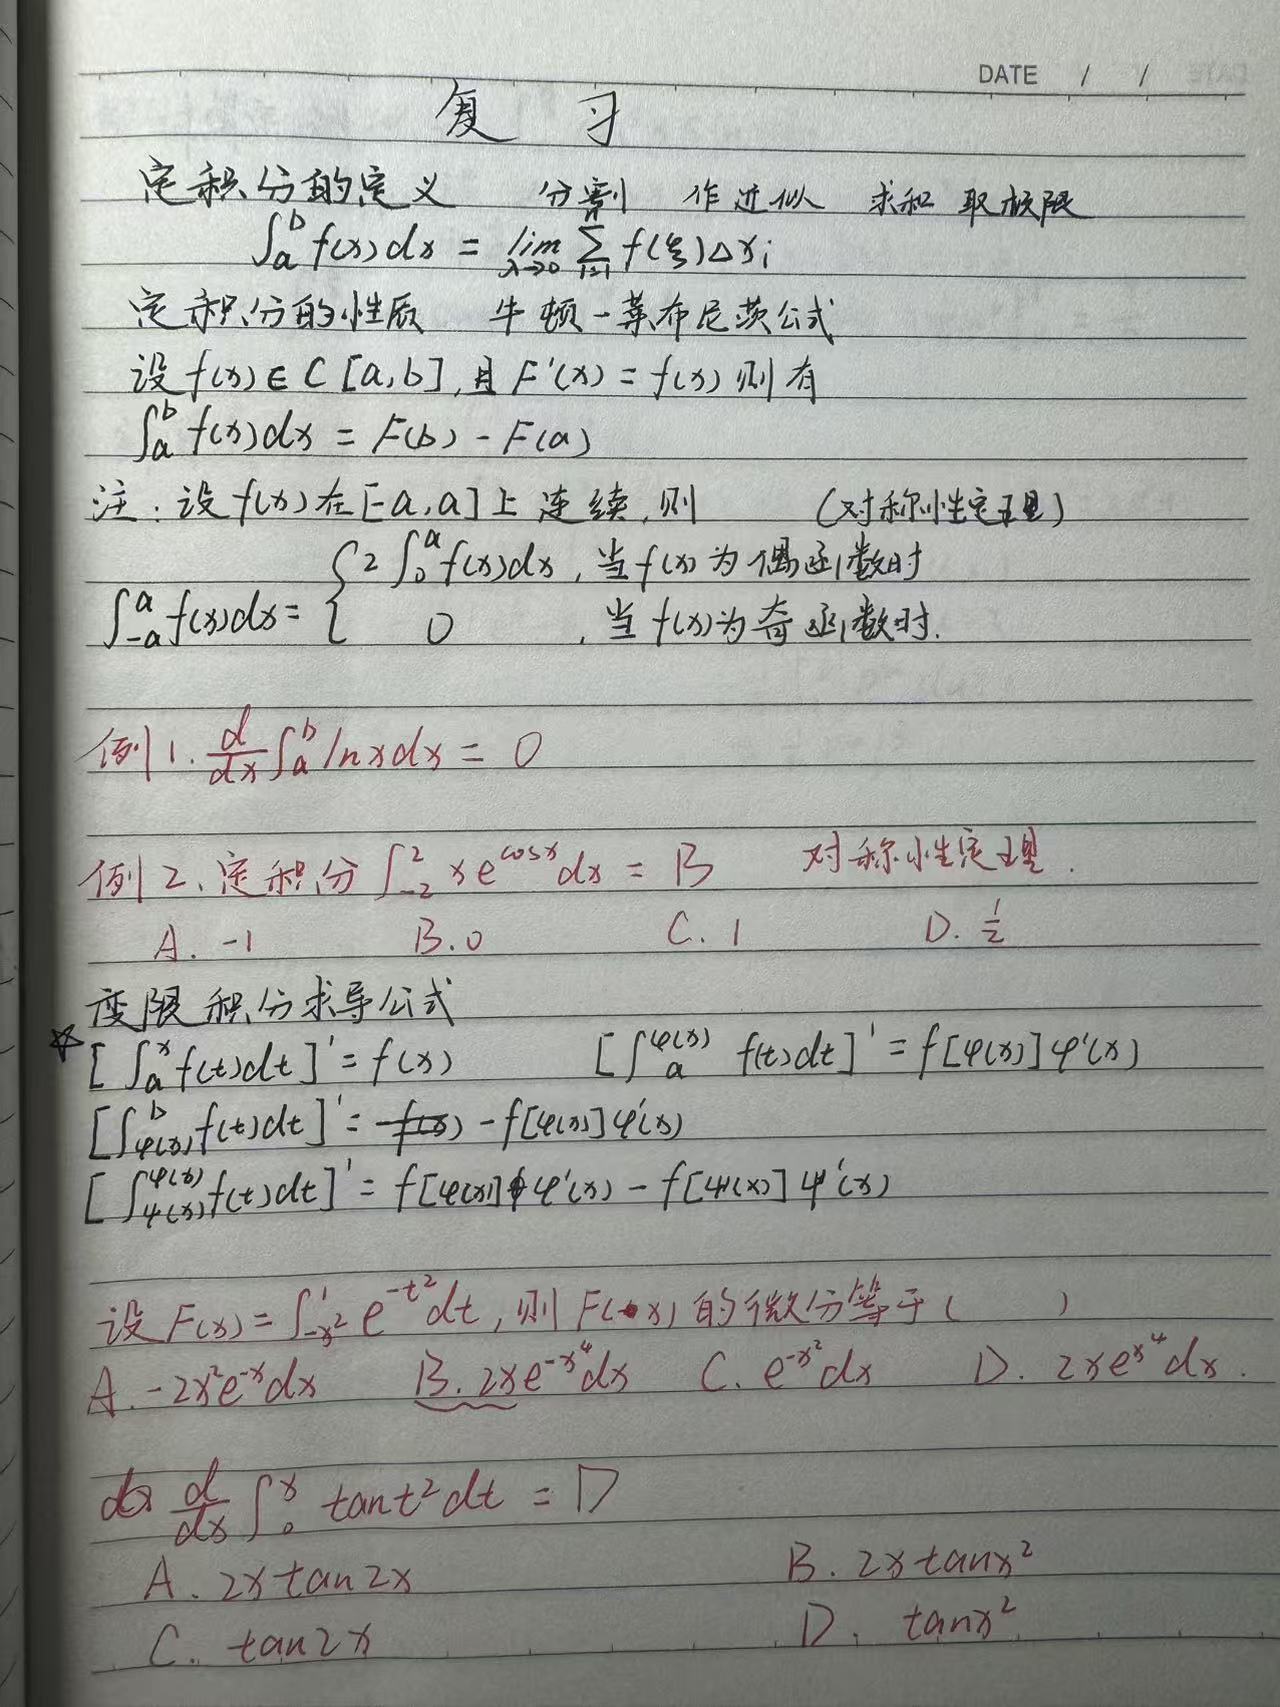 DATE / /
复习
定积分的定义 分割 作近似 求和 取极限
∫_a^b f(x)dx = lim_{λ→0} ∑_{i=1}^n f(ξ)Δx_i
定积分的性质 牛顿-莱布尼茨公式
设f(x)∈C[a,b],且F'(x)=f(x)则有
∫_a^b f(x)dx = F(b) - F(a)
注:设f(x)在[-a,a]上连续,则 (对称性定理)
∫_{-a}^a f(x)dx = { 2∫_0^a f(x)dx, 当f(x)为偶函数时
0 ,当f(x)为奇函数时.
例1. d/dx ∫_a^b lnxdx = 0
例2、定积分 ∫_{-2}^2 xe^{cosx}dx = B 对称性定理.
A. -1 B. 0 C. 1 D. 1/2
变限积分求导公式
☆[∫_a^x f(t)dt]' = f(x) [∫_a^{φ(x)} f(t)dt]' = f[φ(x)]φ'(x)
[∫_{φ(x)}^b f(t)dt]' = -f[φ(x)]φ'(x)
[∫_{ψ(x)}^{φ(x)} f(t)dt]' = f[φ(x)]φ'(x) - f[ψ(x)]ψ'(x)
设F(x)=∫_{-x²}^1 e^{-t²}dt,则F(x)的微分等于( )
A. -2x²e^{-x}dx B. 2xe^{-x⁴}dx C. e^{-x²}dx D. 2xe^{x⁴}dx.
d/dx ∫_0^x tant²dt = D
A. 2xtan2x B. 2xtanx²
C. tan2x D. tanx²